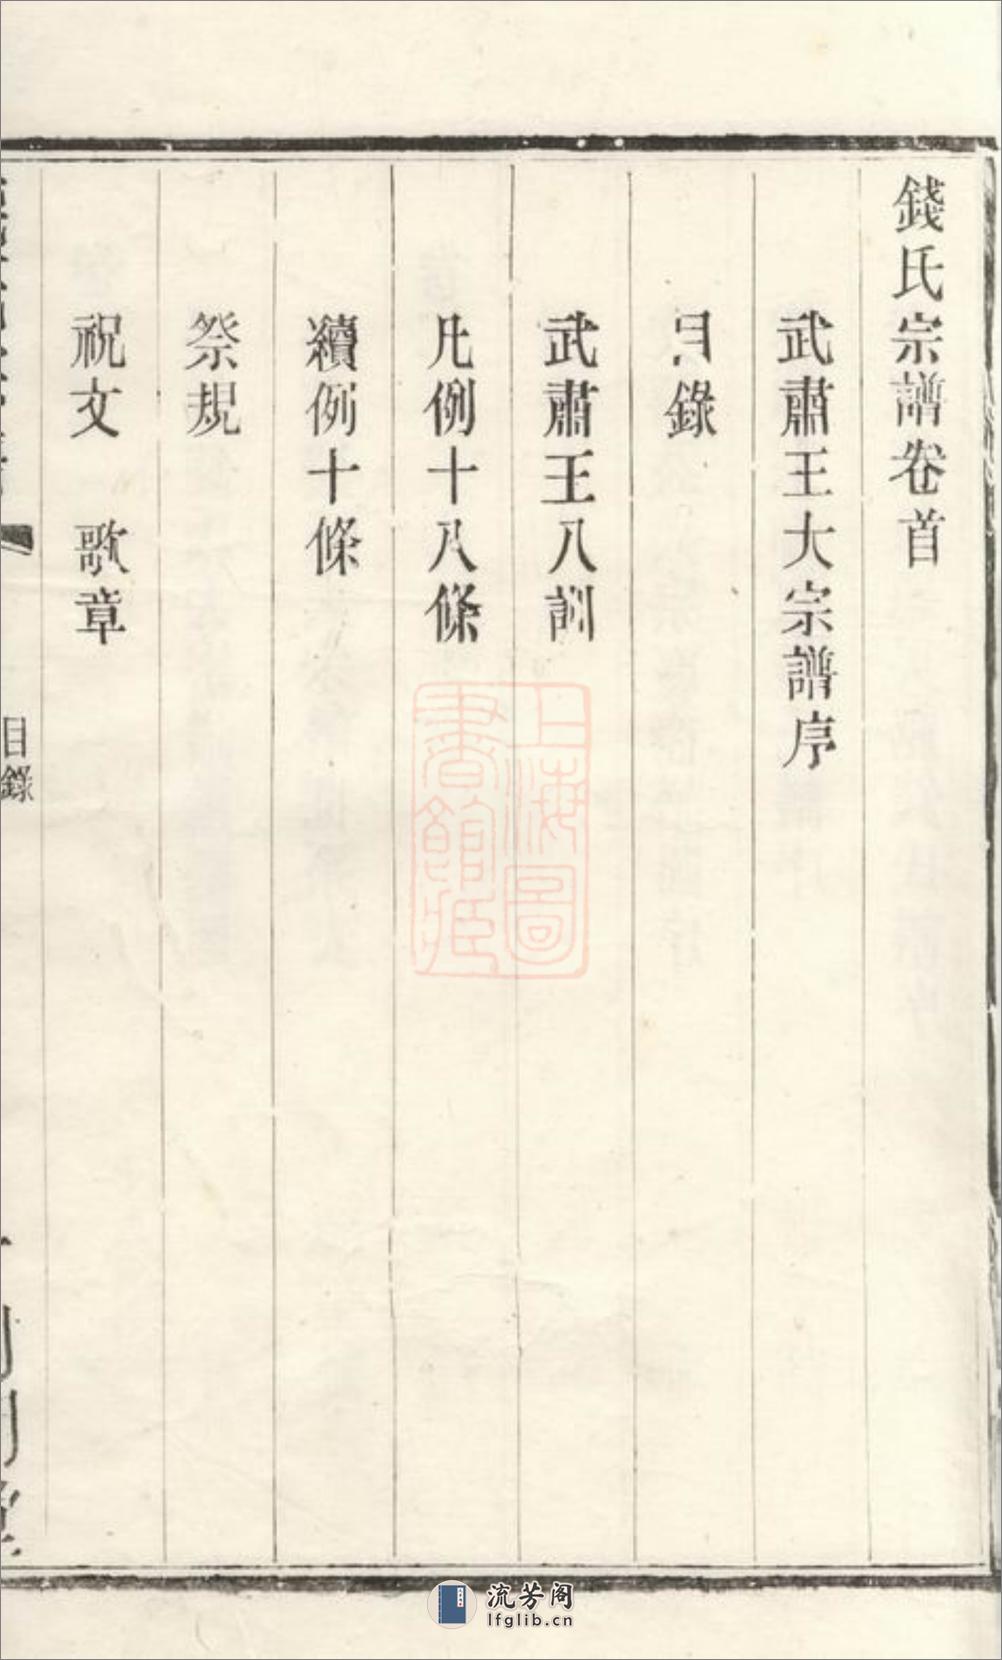 錢氏宗譜卷首
武肅王大宗譜序
目錄
武肅王八訓
凡例十八條
續例十條
祭規
祝文 歌章
目錄
上海圖
書館藏
流芳阁
lfglib.cn